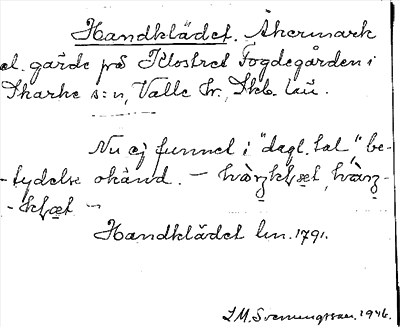 Handklädet. Åkermark
el. gärde på Klostret Fogdegården i
Skarke s:n, Valle hr., Skb. län.
Nu ej funnet i "dagl. tal," be-
-tydelse okänd. –
Handklädet lm. 1791.
S.M. Svenungsson. 1946.